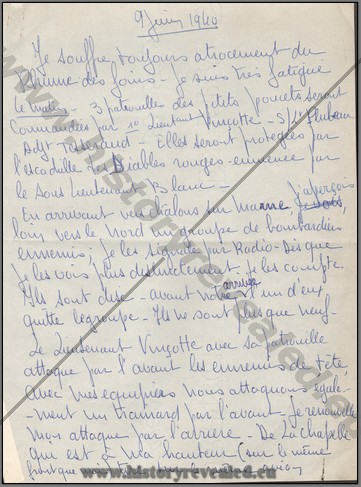 9 Juin 1940
Je souffre toujours atrocement du
Rhume des foins - je suis très fatigué
le matin - 3 patrouilles des petits poucets seront
Commandées par le Lieutenant Vinçotte - S/Lt
Adjt - Elles seront protégées par
l'escadrille des Diables rouges - emmenée par
le Sous Lieutenant Blanc -
En arrivant vers Chalons sur Marne, j'aperçois
loin vers le Nord un groupe de bombardiers
ennemis, je les signale par Radio - Dès que
je les vois plus distinctement - je les compte.
Ils sont dix - avant notre arrivée l'un d'eux
quitte le groupe - Ils ne sont plus que neuf -
Le Lieutenant Vinçotte avec sa patrouille
attaque par l'avant les ennemis de tête,
Avec mes équipiers nous attaquons égale-
-ment un trainard par l'avant - je renouvelle
mon attaque par l'arrière - De La Chapelle
qui est à ma hauteur (sur le même
front que moi)
www.historyrevealed.eu